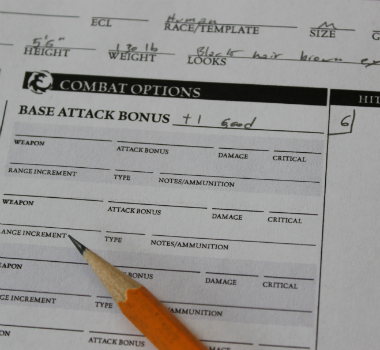 Human M
ECL RACE/TEMPLATE SIZE
5'6" 130 lb Black hair brown
HEIGHT WEIGHT LOOKS
COMBAT OPTIONS HIT
BASE ATTACK BONUS +1 good 6
WEAPON ATTACK BONUS DAMAGE CRITICAL
RANGE INCREMENT TYPE NOTES/AMMUNITION
WEAPON ATTACK BONUS DAMAGE CRITICAL
ANGE INCREMENT TYPE NOTES/AMMUNITION
EAPON BONUS DAMAGE CRITICAL
GE INCREMENT TYPE NOTES/AMMUNITION
APON ATTACK BONUS DAMAGE CRITICAL